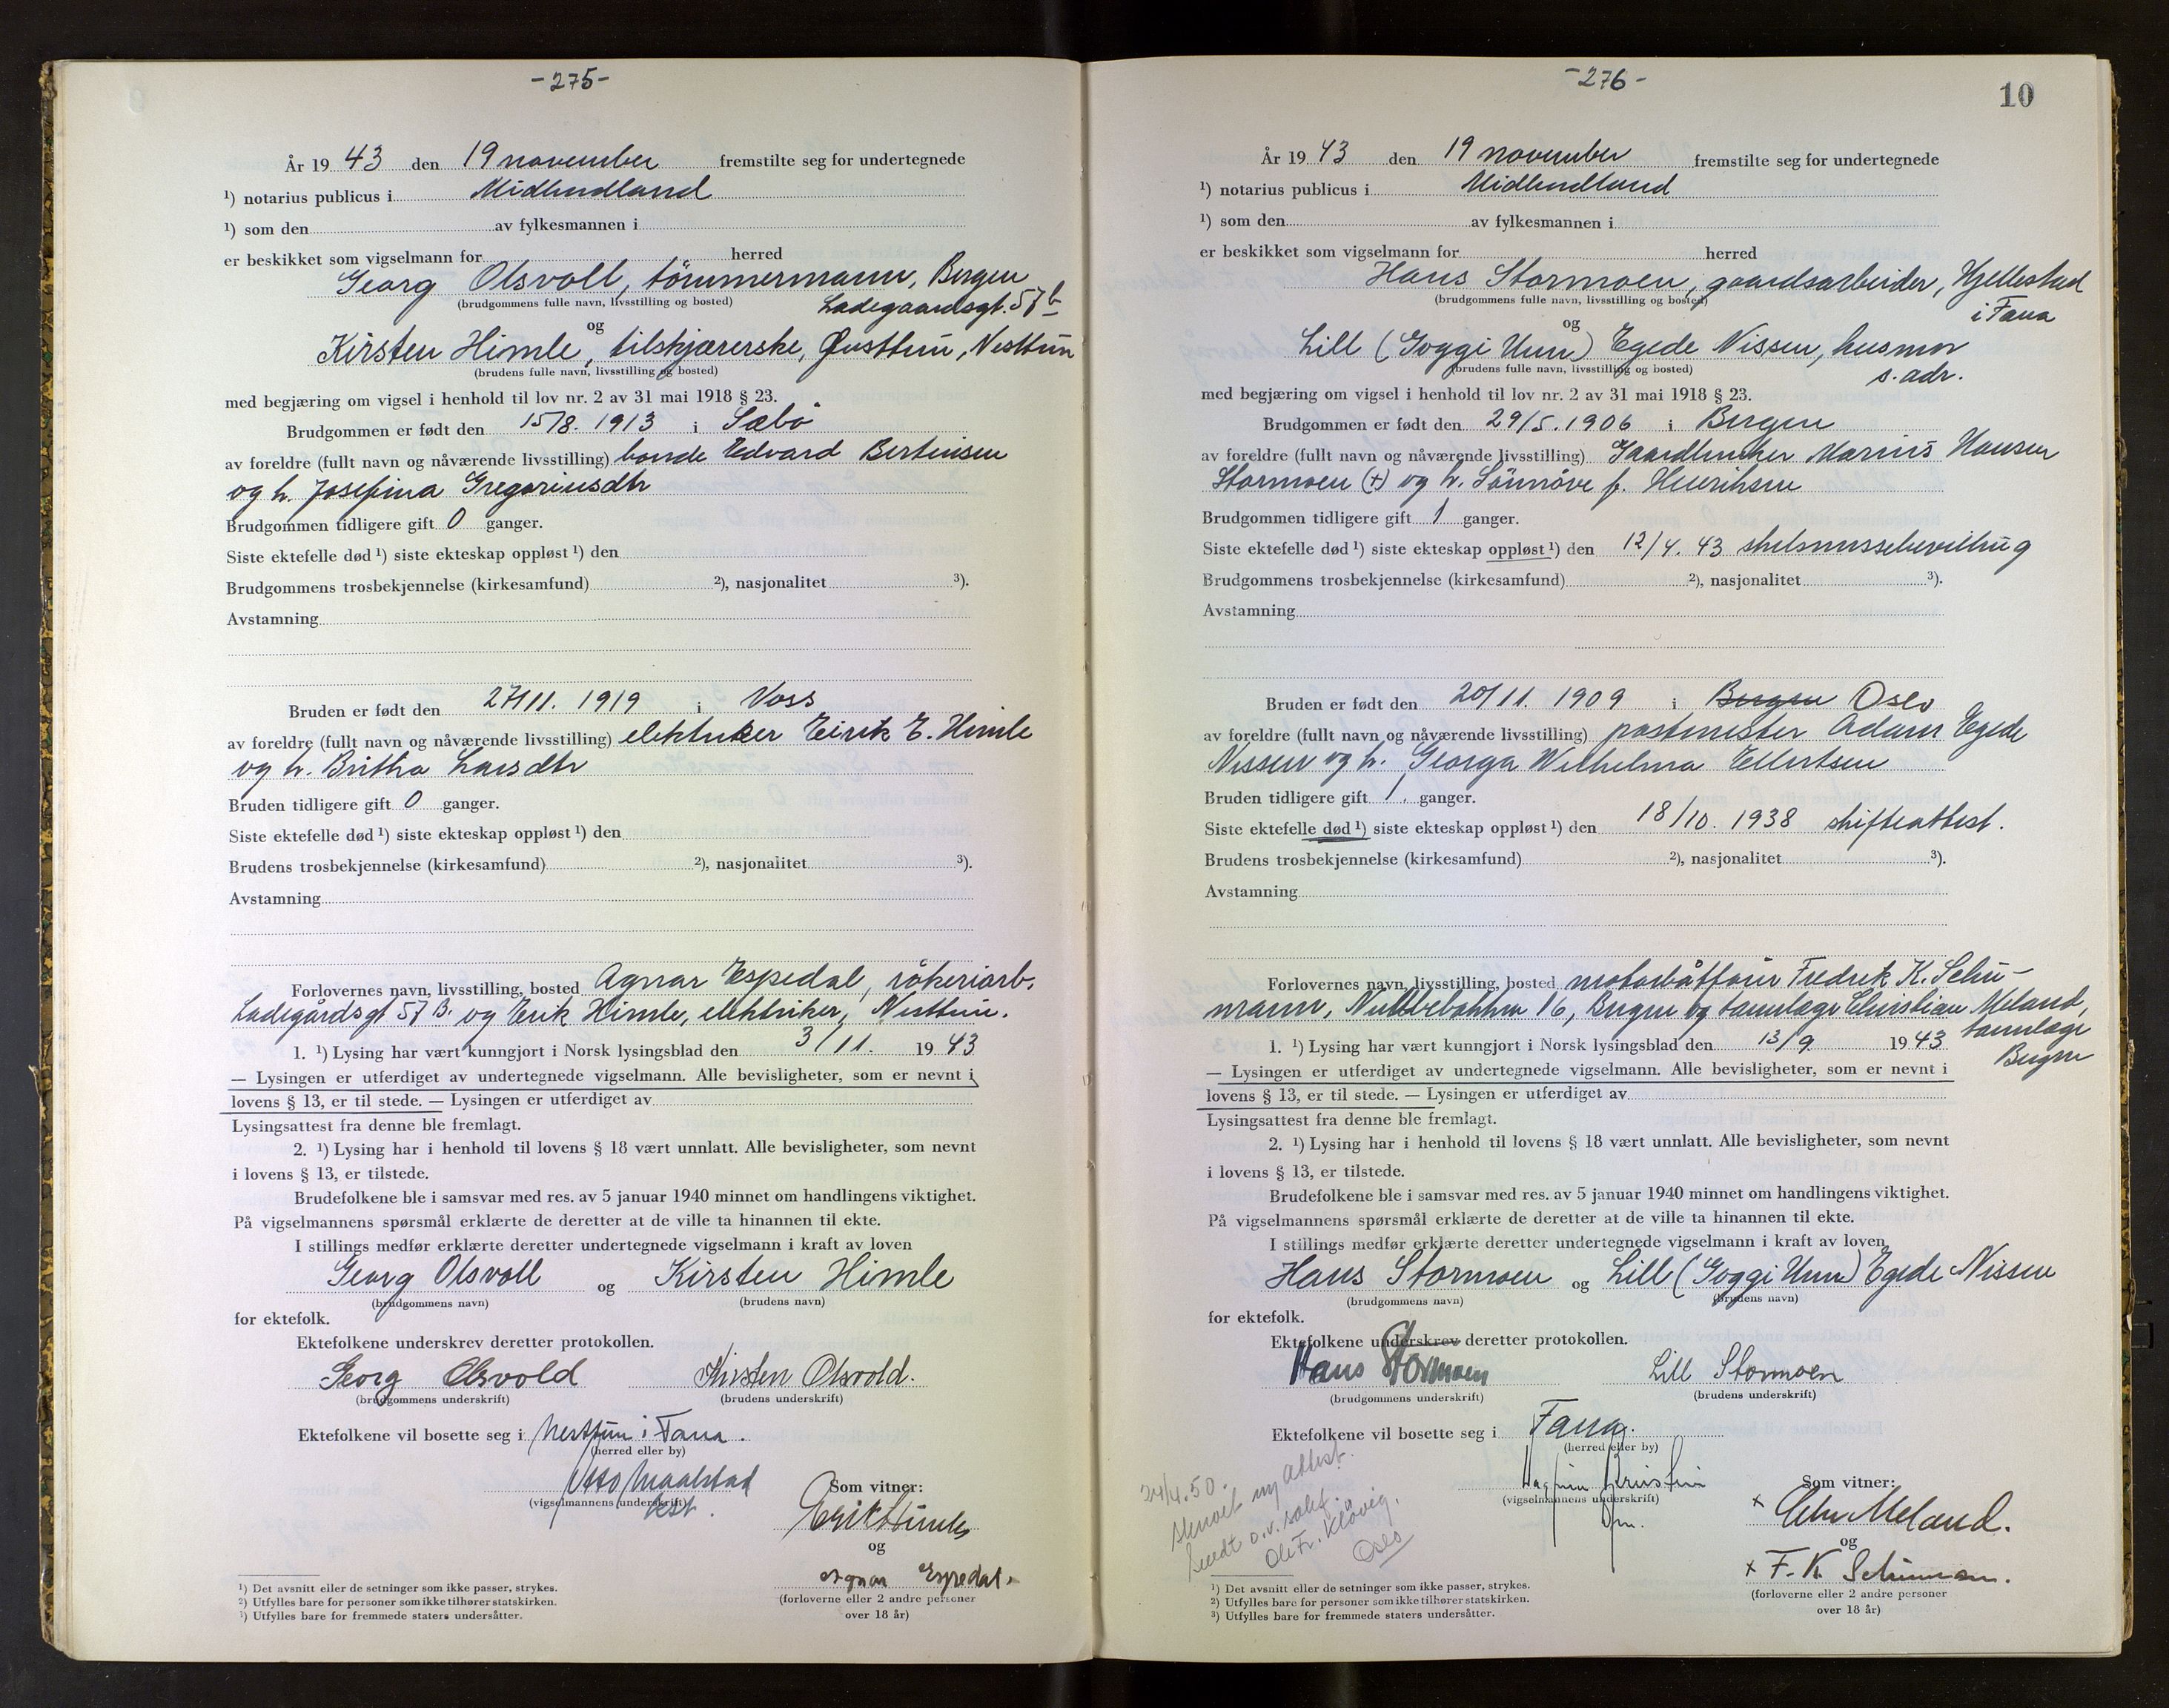 -275-
År 19 43 den 19 november fremstilte seg for undertegnede
¹) notarius publicus i Midhordland
¹) som den av fylkesmannen i
er beskikket som vigselmann for herred
Georg Olsvoll, tömmermann, Bergen
(brudgommens fulle navn, livsstilling og bosted) Ladegaardsgt. 57 b
og
Kirsten Himle, tilskjærerske, Øvsttun, Nesttun
(brudens fulle navn, livsstilling og bosted)
med begjæring om vigsel i henhold til lov nr. 2 av 31 mai 1918 § 23.
Brudgommen er født den 15/8. 1913 i Sæbö
av foreldre (fullt navn og nåværende livsstilling) bonde Edvard Bertinsen
og h. Josefina Gregoriusdtr
Brudgommen tidligere gift 0 ganger.
Siste ektefelle død ¹) siste ekteskap oppløst ¹) den
Brudgommens trosbekjennelse (kirkesamfund) ²), nasjonalitet ³).
Avstamning
Bruden er født den 27/11. 1919 i Voss
av foreldre (fullt navn og nåværende livsstilling) elektriker Eirik E. Himle
og h. Britha Larsdtr
Bruden tidligere gift 0 ganger.
Siste ektefelle død ¹) siste ekteskap oppløst ¹) den
Brudens trosbekjennelse (kirkesamfund) ²), nasjonalitet ³).
Avstamning
Forlovernes navn, livsstilling, bosted Agnar Espedal, rökeriarb.
Ladegårdsgt 57 B. og Erik Himle, elektriker, Nesttun.
1. ¹) Lysing har vært kunngjort i Norsk lysingsblad den 3/11. 19 43
— Lysingen er utferdiget av undertegnede vigselmann. Alle bevisligheter, som er nevnt i
lovens § 13, er til stede. — Lysingen er utferdiget av
Lysingsattest fra denne ble fremlagt.
2. ¹) Lysing har i henhold til lovens § 18 vært unnlatt. Alle bevisligheter, som nevnt
i lovens § 13, er tilstede.
Brudefolkene ble i samsvar med res. av 5 januar 1940 minnet om handlingens viktighet.
På vigselmannens spørsmål erklærte de deretter at de ville ta hinannen til ekte.
I stillings medfør erklærte deretter undertegnede vigselmann i kraft av loven
Georg Olsvoll og Kirsten Himle
(brudgommens navn) (brudens navn)
for ektefolk.
Ektefolkene underskrev deretter protokollen.
Georg Olsvold Kirsten Olsvold.
(brudgommens underskrift) (brudens underskrift)
Ektefolkene vil bosette seg i Nesttun i Fana.
(herred eller by)
Otto Maalstad
(vigselmannens underskrift) Som vitner:
Erik Himle
og
Agnar Espedal.
(forloverne eller 2 andre personer
over 18 år)
¹) Det avsnitt eller de setninger som ikke passer, strykes.
²) Utfylles bare for personer som ikke tilhører statskirken.
³) Utfylles bare for fremmede staters undersåtter.
-276-
10
År 19 43 den 19 november fremstilte seg for undertegnede
¹) notarius publicus i Midhordland
¹) som den av fylkesmannen i
er beskikket som vigselmann for herred
Hans Stormoen, gaardsarbeider, Hjellestad
(brudgommens fulle navn, livsstilling og bosted) i Fana
og
Lill (Goggi Unn) Egede Nissen, husmor
(brudens fulle navn, livsstilling og bosted) s. adr.
med begjæring om vigsel i henhold til lov nr. 2 av 31 mai 1918 § 23.
Brudgommen er født den 29/5. 1906 i Bergen
av foreldre (fullt navn og nåværende livsstilling) Gaardbruker Marius Hansen
Stormoen (+) og h. Sönnöve f. Henriksen
Brudgommen tidligere gift 1 ganger.
Siste ektefelle død ¹) siste ekteskap oppløst ¹) den 12/4. 43 skilsmissebevilling
Brudgommens trosbekjennelse (kirkesamfund) ²), nasjonalitet ³).
Avstamning
Bruden er født den 20/11. 1909 i Bergen Oslo
av foreldre (fullt navn og nåværende livsstilling) postmester Adam Egede
Nissen og h. Georga Wilhelma Ellertsen
Bruden tidligere gift 1. ganger.
Siste ektefelle død ¹) siste ekteskap oppløst ¹) den 18/10. 1938 skifteattest.
Brudens trosbekjennelse (kirkesamfund) ²), nasjonalitet ³).
Avstamning
Forlovernes navn, livsstilling, bosted motorbåtförer Fredrik K. Schu-
mann, 16, Bergen og tannlæge Christian Meland,
tannlæge
1. ¹) Lysing har vært kunngjort i Norsk lysingsblad den 13/9 19 43
Bergen
— Lysingen er utferdiget av undertegnede vigselmann. Alle bevisligheter, som er nevnt i
lovens § 13, er til stede. — Lysingen er utferdiget av
Lysingsattest fra denne ble fremlagt.
2. ¹) Lysing har i henhold til lovens § 18 vært unnlatt. Alle bevisligheter, som nevnt
i lovens § 13, er tilstede.
Brudefolkene ble i samsvar med res. av 5 januar 1940 minnet om handlingens viktighet.
På vigselmannens spørsmål erklærte de deretter at de ville ta hinannen til ekte.
I stillings medfør erklærte deretter undertegnede vigselmann i kraft av loven
Hans Stormoen og Lill (Goggi Unn) Egede Nissen
(brudgommens navn) (brudens navn)
for ektefolk.
Ektefolkene underskrev deretter protokollen.
Hans Stormoen Lill Stormoen
(brudgommens underskrift) (brudens underskrift)
Ektefolkene vil bosette seg i Fana.
(herred eller by)
(vigselmannens underskrift) Som vitner:
x Chr Meland.
og
x F. K Schumann.
(forloverne eller 2 andre personer
over 18 år)
24/4.50.
ny attest.
sendt o.r. sakf.
Ole Fr. Klövig,
Oslo
¹) Det avsnitt eller de setninger som ikke passer, strykes.
²) Utfylles bare for personer som ikke tilhører statskirken.
³) Utfylles bare for fremmede staters undersåtter.